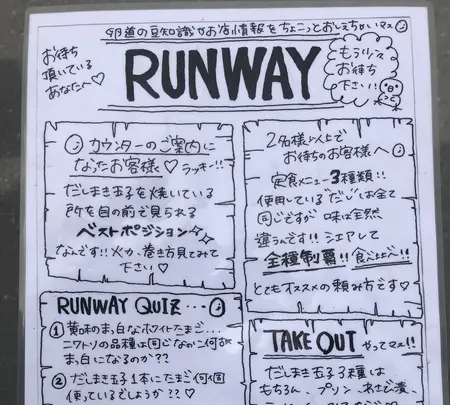 卵道の豆知識やお店情報をちょこっとおしえちゃいマス
お待ち
頂いている
あなたへ♡
RUNWAY
もう少々
お待ち
下さい!!
カウンターのご案内に
なったお客様♡ラッキー!!
だしまき玉子を焼いている
所を目の前で見られる
ベストポジション
なんです!!火力、巻き方見てみて
下さい♡
2名様以上で
お待ちのお客様へ
定食メニュー3種類!!
使用している"だし"は全て
同じですが味は全然
違うんです!!シェアして
全種制覇!!食べよべし!!
とてもオススメの頼み方です♡
RUNWAY QUIZ...
① 黄味のまっ白なホワイトたまご...
ニワトリの品種は同じなのに何故
まっ白になるのか??
② だしまき玉子1本にたまご何個
使っているでしょうか??♡
TAKE OUT やってマス!!
だしまき玉子3種は
もちろん、プリン、